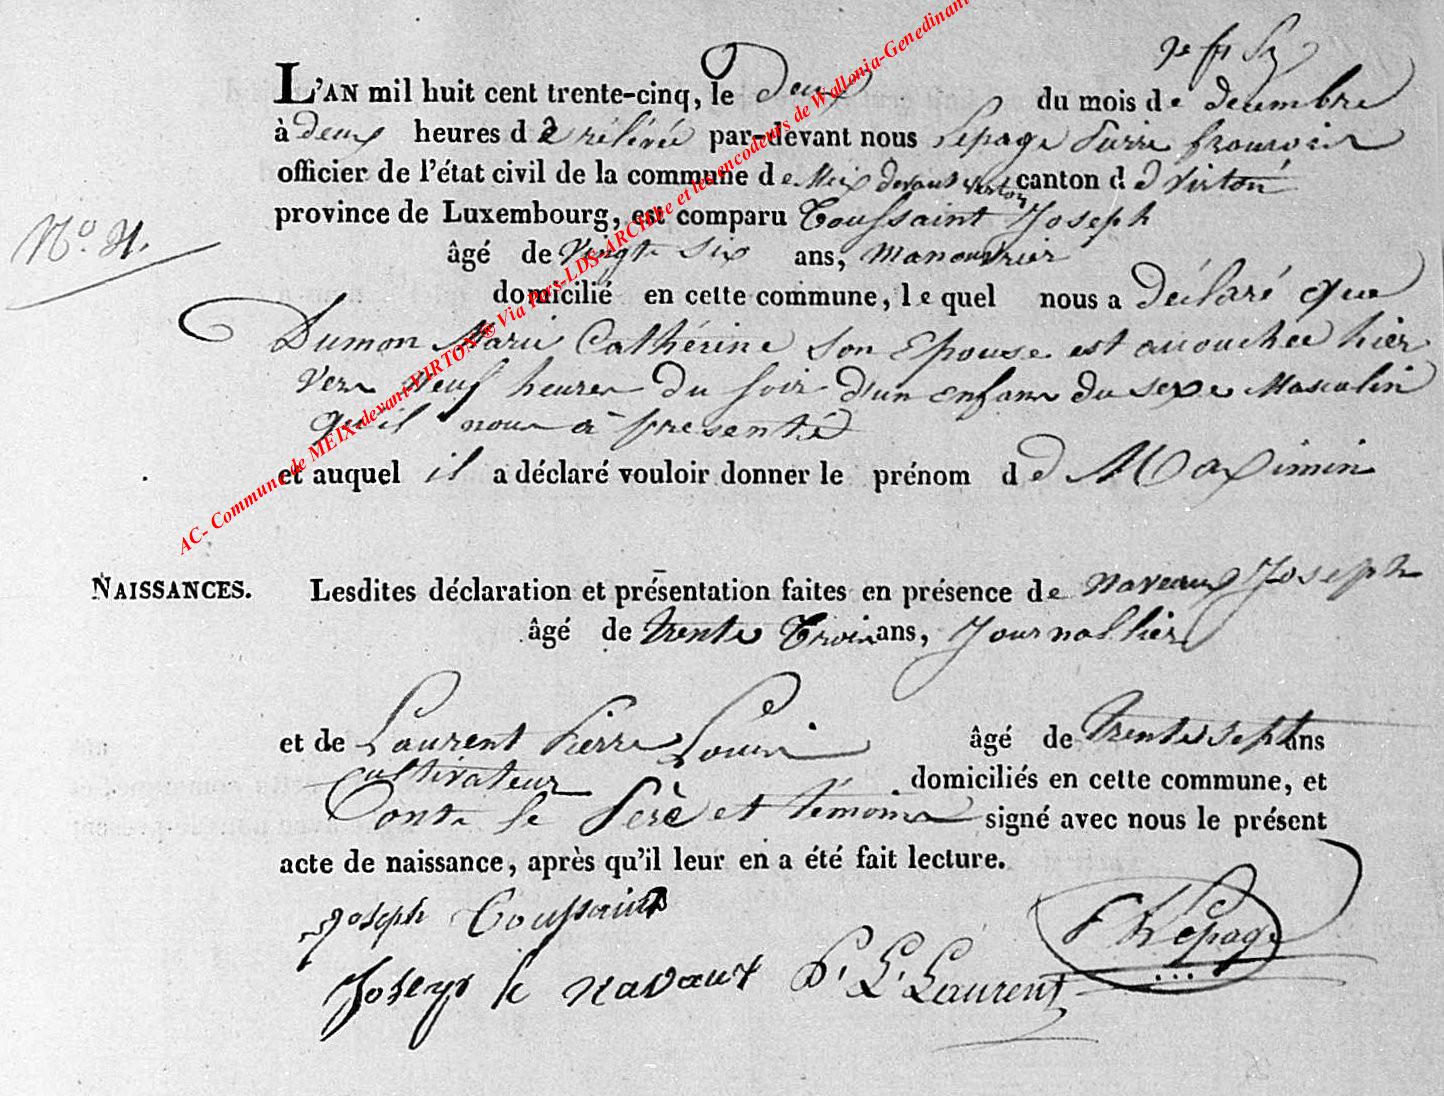 L'AN mil huit cent trente-cinq, le deux du mois de decembre
à deux heures de rélévée par-devant nous Lepage Pierre françois
officier de l'état civil de la commune de Meix devant virton canton d de virton
province de Luxembourg, est comparu Toussaint Joseph
N.o 41.
âgé de vingt six ans, Manouvrier
domicilié en cette commune, lequel nous a déclaré que
Dumon Marie Cathérine son Epouse est accouchée hier
vers neuf heures du soir d'un enfant du sexe Masculin
qu'il nous à présenté
et auquel il a déclaré vouloir donner le prénom d e Maximin
AC- Commune de MEIX-devant-VIRTON © Via Pars-LDS-ARCHBe et les encodeurs de Wallonia-Genedinant
NAISSANCES. Lesdites déclaration et présentation faites en présence de Naveaux Joseph
âgé de trente trois ans, Journallier
et de Laurent Pierre Louis âgé de trente sept ans
Cultivateur domiciliés en cette commune, et
Dont le Père et témoins signé avec nous le présent
acte de naissance, après qu'il leur en a été fait lecture.
Joseph Toussaint
Joseph le navaux P. L. Laurent P Lepage